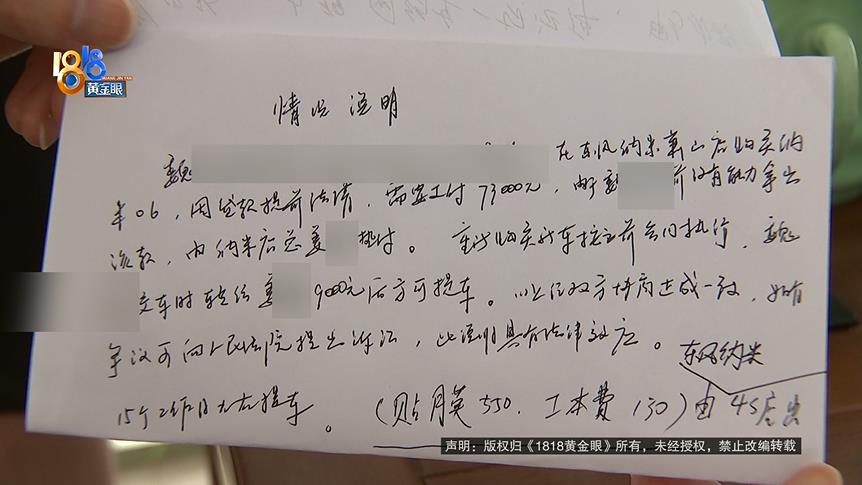 1818
HUANG JIN YAN
黄金眼
情况说明
魏 在东风纳米萧山店购买纳
米06,用贷款提前结清,需要支付73000元,由于魏 目前没有能力拿出
该款,由纳米店总姜 垫付。 重新购买新车按之前合同执行,魏
交车时转给姜 9000元后方可提车。以上经双方协商达成一致,如有
争议可向人民法院提出诉讼,此说明具有法律效应。
东风纳米
15个工作日左右提车。(贴膜550.工本费130)由4S店出
声明:版权归《1818黄金眼》所有,未经授权,禁止改编转载